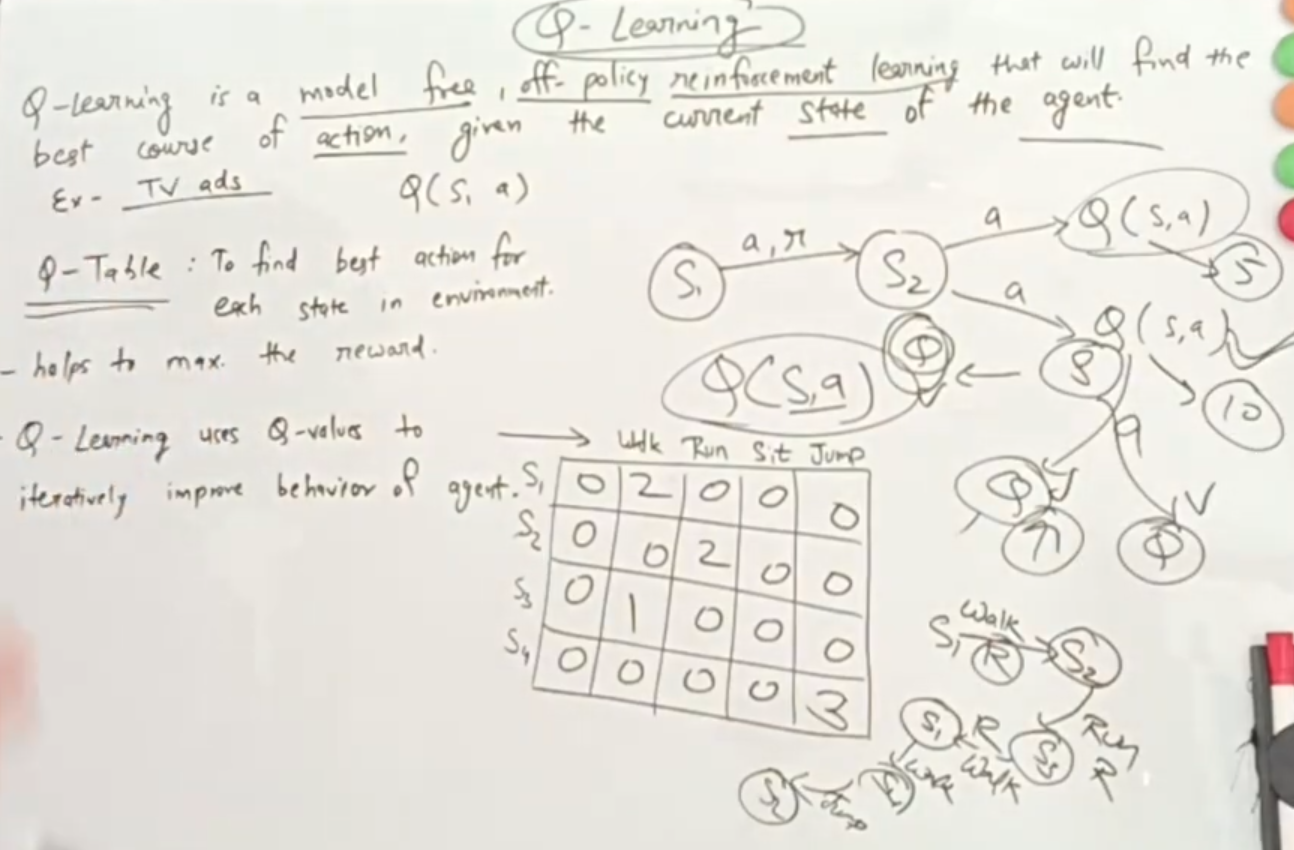 Q- Learning
Q-Learning is a model free, off-policy reinforcement learning that will find the
best course of action, given the current state of the agent.
Ex- TV ads
Q(S, a)
Q-Table : To find best action for
each state in environment.
- helps to max. the reward.
- Q-Learning uses Q-values to
iteratively improve behavior of agent.
S1 a, r S2 a Q(S,a) 5
a Q(S,a) 10
Q(S,a)
Walk Run Sit Jump
S1 0 2 0 0 0
S2 0 0 2 0 0
S3 0 1 0 0 0
S4 0 0 0 0 3
S1 Walk R S2
Run R
S3
Walk R
S1